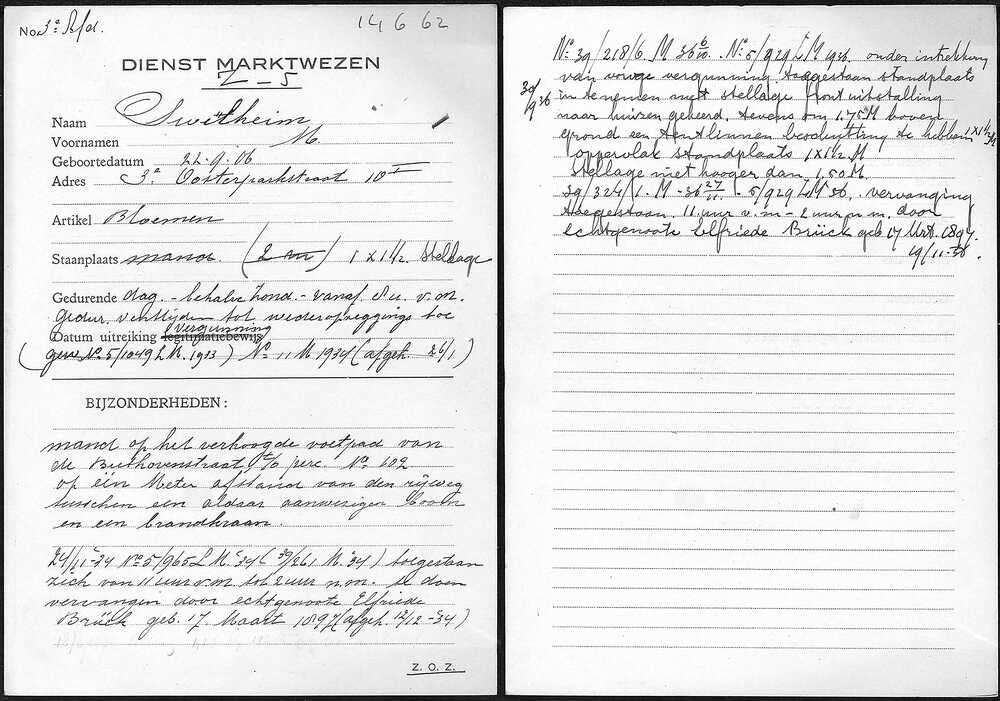 No. 3e Afd.
14 6 62
DIENST MARKTWEZEN
Z-5
Naam Switheim
Voornamen M.
Geboortedatum 22.9.06
Adres 3e Oosterparkstraat 10 I
Artikel Bloemen
Staanplaats mand. (2 m) 1 x 1 1/2. Stellage
Gedurende dag. - behalve Zond. - vanaf 8 u. v.m.
gedur. venttijden tot wederopzeggings toe
Vergunning
Datum uitreiking legitimatiebewijs
(gew. No. 5/1049 L.M. 1933) No. 11 M 1934 (afgeh. 26/1)
BIJZONDERHEDEN:
mand op het verhoogde voetpad van
de Beethovenstraat t/o perc. No. 102
op één Meter afstand van den rijweg
tusschen een aldaar aanwezigen boom
en een brandkraan.
24/11-34 No. 5/965 L.M. '34 (39/261 M. '34) toegestaan
zich van 11 uur v.m. tot 2 uur n.m. te doen
vervangen door echtgenoote Elfriede
Brück geb. 17 Maart 1897 (afgeh. 12/12-34)
Z. O. Z.
No. 39/218/6 M 36 6/10. No. 5/929 L M 1936. onder intrekking
van vorige vergunning toegestaan standplaats
30/9 36
in te nemen met stellage front uitstalling
naar huizen gekeerd, tevens om 1.75 M boven
grond een tentlinnen beschutting te hebben 1 x 1 1/2
oppervlak standplaats 1 x 1 1/2 M
stellage niet hooger dan 1,50 M.
39/324/1. M - 36 27/11. - 5/929 L M 36. vervanging
toegestaan 11 uur v.m - 2 uur n.m. door
echtgenoote Elfriede Brück geb 17 Mrt. 1897.
19/11-36.